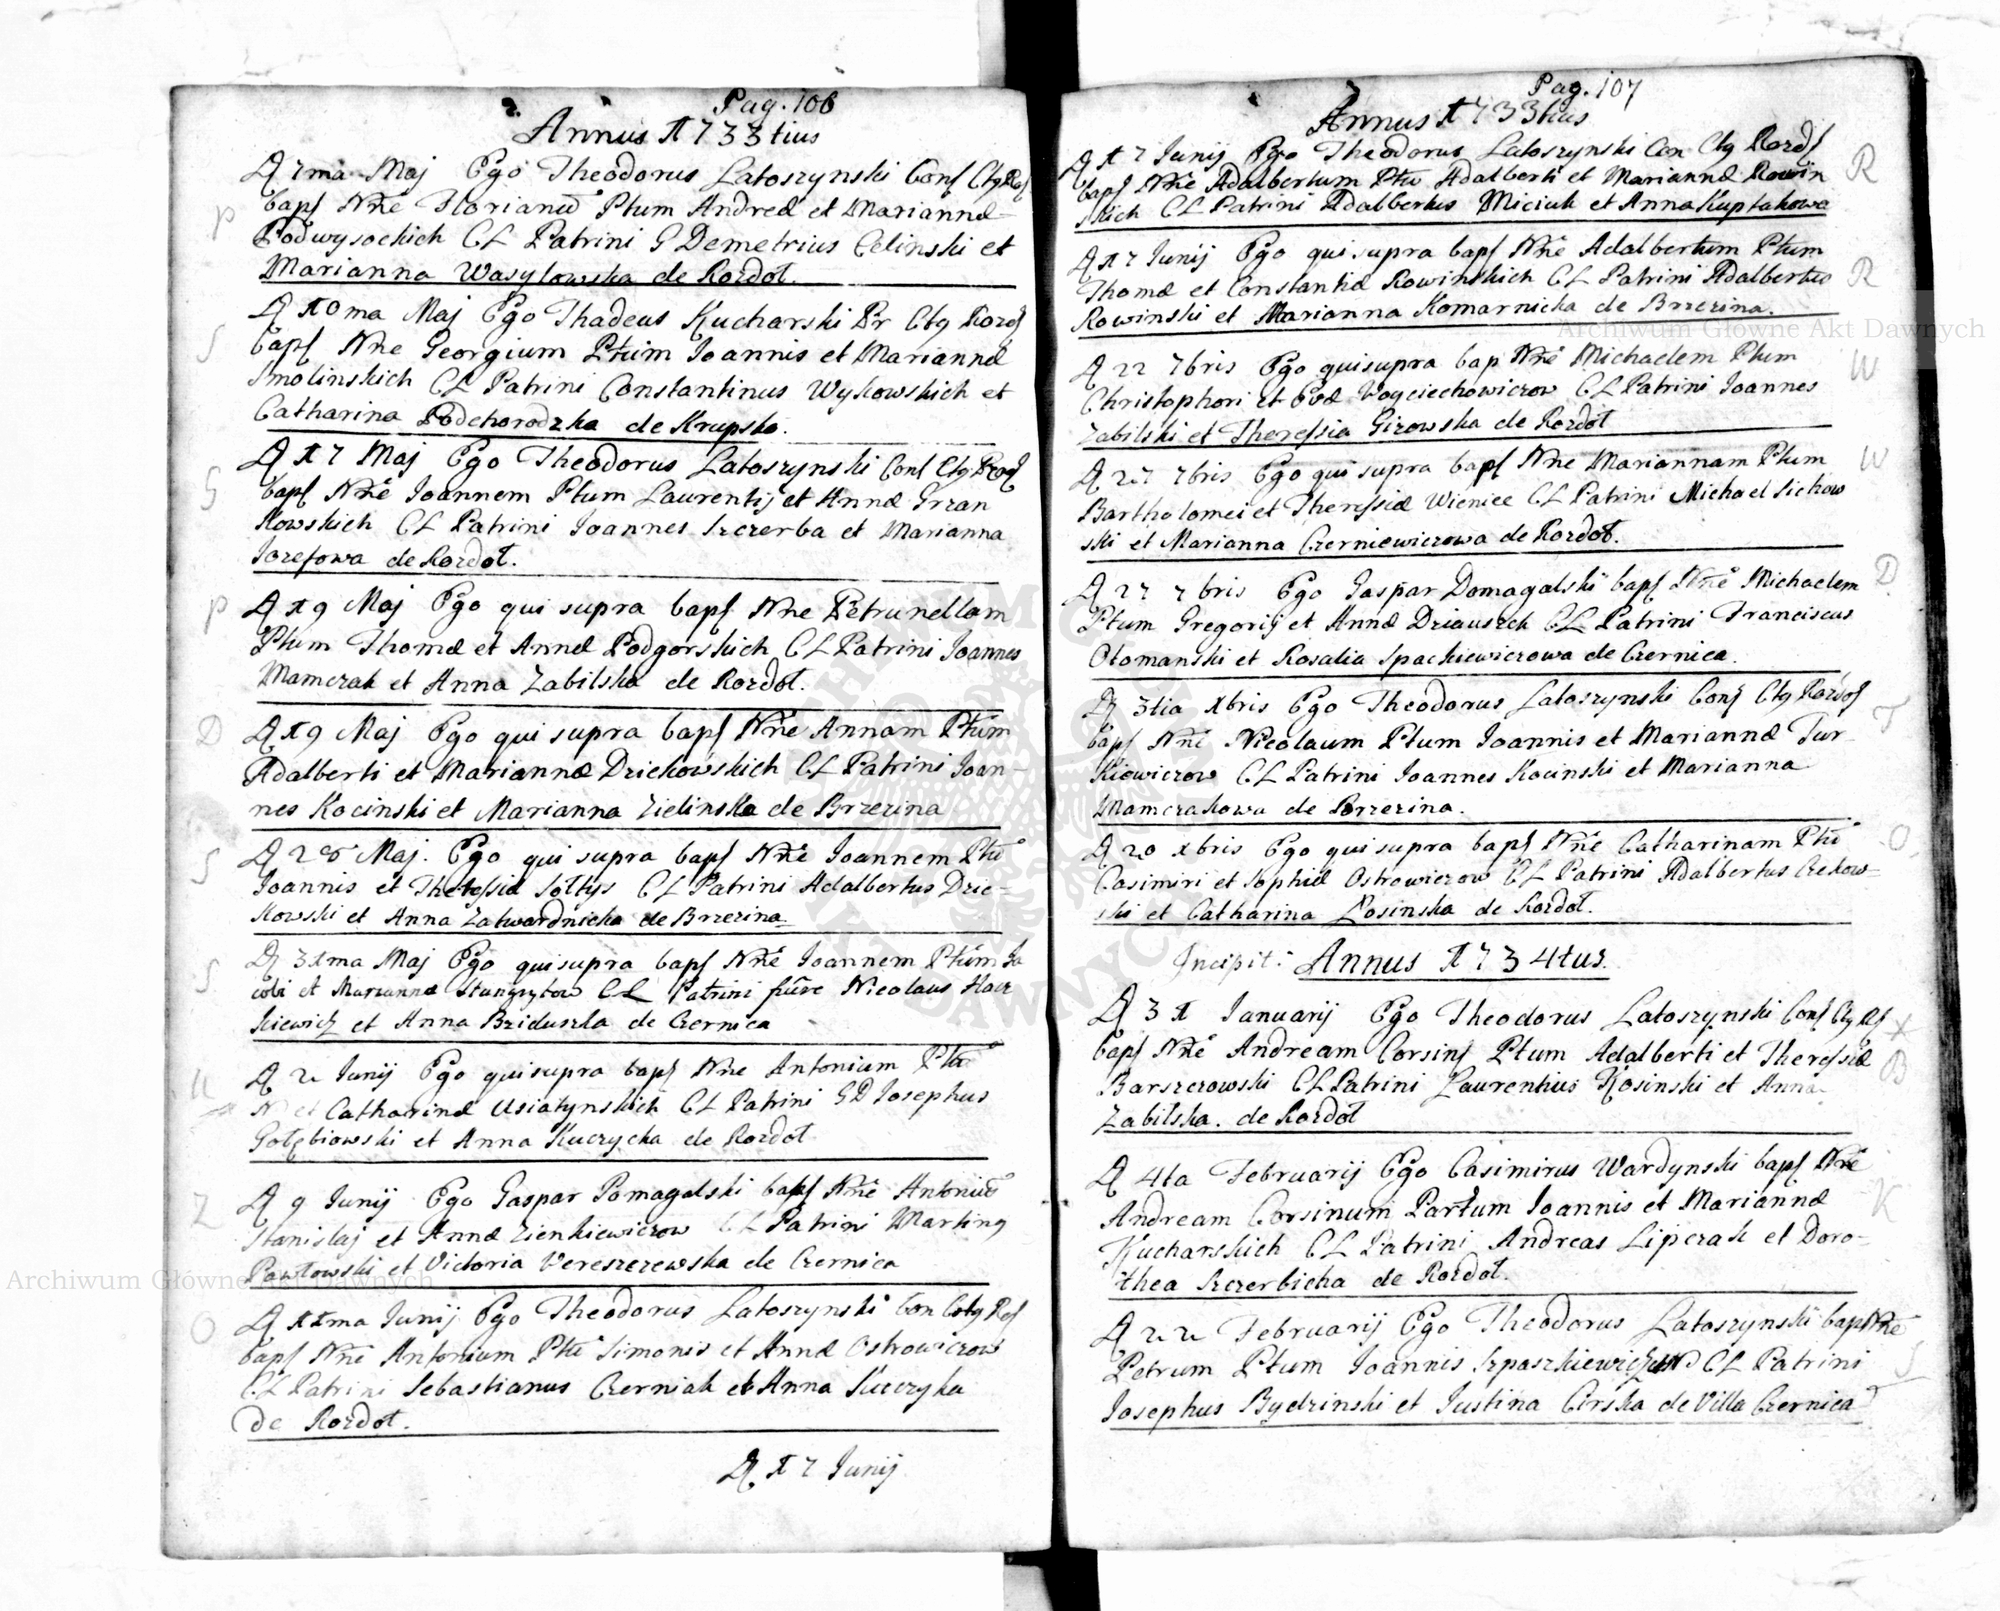 Pag. 106
Annus 1733tius
D 7ma Maj Ego Theodorus Latoszynski Conf Ctg Roz
bapf Nne Florianū Ptum Andreæ et Mariannæ
Podwysockich CL Patrini G Demetrius Celinski et
Marianna Wasylowska de Rozdoł.
D 10ma Maj Ego Thadeus Kucharski Pr Ctg Rozd
bapf Nne Georgium Ptum Joannis et Mariannæ
Smolinskich CL Patrini Constantinus Wykowskich et
Catharina Podchorodzka de Krupsko.
D 17 Maj Ego Theodorus Latoszynski Conf Ctg Rozd
bapf Nne Joannem Ptum Laurentij et Annæ Grzan
kowskich CL Patrini Joannes Szczerba et Marianna
Jozefowa de Rozdoł.
D 19 Maj Ego qui supra bapf Nne Petrunellam
Ptum Thomæ et Annæ Podgorskich CL Patrini Joannes
Mamczak et Anna Zabilska de Rozdoł.
D 19 Maj Ego qui supra bapf Nne Annam Ptum
Adalberti et Mariannæ Dzickowskich CL Patrini Joan-
nes Kocinski et Marianna Zielinska de Brzezina
D 28 Maj. Ego qui supra bapf Nne Joannem Ptū
Joannis et Theressiæ Sołtys CL Patrini Adalbertus Dzic-
kowski et Anna Zatwardnicka de Brzezina
D 31ma Maj Ego qui supra bapf Nne Joannem Ptum Ja
cobi et Mariannæ CL Patrini Nicolaus
kiewicz et Anna Briduszka de Czernica
D 22 Junij Ego qui supra bapf Nne Antonium Ptū
N et Catharinæ Usiatynskich CL Patrini GD Josephus
Gołębiowski et Anna Kuczycka de Rozdoł
D 9 Junij Ego Gaspar Domagalski bapf Nne Antoniū
Stanislaj et Annæ Zienkiewiczow CL Patrini Martinq
Pawłowski et Victoria Vereszczewska de Czernica
D 11ma Junij Ego Theodorus Latoszynski Con Ctg Roz
bapf Nne Antonium Ptū Simonis et Annæ Ostrowiczow
CL Patrini Sebastianus Czerniak et Anna Kuczyka
de Rozdoł.
D 17 Junij
Pag. 107
Annus 1733tius
D 17 Junij Ego Theodorus Latoszynski Con Ctg Rozd
bapf Nne Adalbertum Ptū Adalberti et Mariannæ Rowin
skich CL Patrini Adalbertus Miciuk et Anna Kuptakowa
D 17 Junij Ego qui supra bapf Nne Adalbertum Ptum
Thomæ et Constantiæ Rowinskich CL Patrini Adalbertus
Rowinski et Marianna Komarnicka de Brzezina.
D 22 7bris Ego qui supra bap Nne Michaelem Ptum
Christophori et Evæ Woyciechowiczow CL Patrini Joannes
Zabilski et Theressia Girowska de Rozdoł
D 27 7bris Ego qui supra bapf Nne Mariannam Ptum
Bartholomei et Theressiæ Wieniec CL Patrini Michael Sichow
ski et Marianna Czerniewiczowa de Rozdoł.
D 27 7bris Ego Gaspar Domagalski bapf Nne Michaelem
Ptum Gregorij et Annæ Dziauszek CL Patrini Franciscus
Otomanski et Rosalia Spackiewiczowa de Czernica.
D 3tia xbris Ego Theodorus Latoszynski Conf Ctg Rozdoł
bapf Nne Nicolaum Ptum Joannis et Mariannæ Tur-
kiewiczow CL Patrini Joannes Kocinski et Marianna
Mamczakowa de Brzezina.
D 20 xbris Ego qui supra bapf Nne Catharinam Ptū
Casimiri et Sophiæ Ostrowiczow CL Patrini Adalbertus Czekow-
ski et Catharina Losinska de Rozdoł.
Incipit: Annus 1734tus.
D 31 Januarij Ego Theodorus Latoszynski Conf Ctg Rf
bapf Nne Andream Corsinf Ptum Adalberti et Theressiæ
Barszczowski CL Patrini Laurentius Kosinski et Anna
Zabilska. de Rozdoł
D 4ta Februarij Ego Casimirus Wardynski bapf Nne
Andream Corsinum Partum Joannis et Mariannæ
Kucharskich CL Patrini Andreas Lipczak et Doro-
thea Szczerbicka de Rozdoł.
D 22 Februarij Ego Theodorus Latoszynski bap Nne
Petrum Ptum Joannis CL Patrini
Josephus Bydzinski et Justina Cirska de Villa Czernica
P
S
G
P
D
S
S
U
Z
O
R
R
W
W
D
T
O
B
K
S
Archiwum Główne Akt Dawnych
Archiwum Główne Akt Dawnych